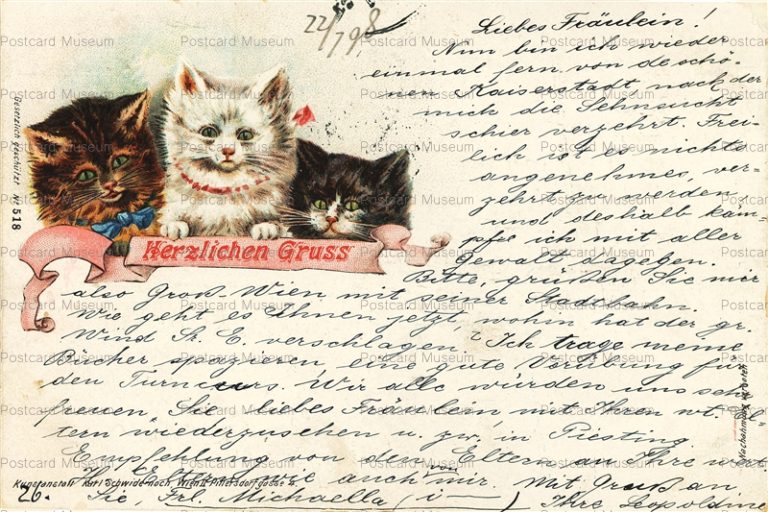 22/7 98
Liebes Fräulein!
Nun bin ich wieder
einmal fern von de schö-
nen Kaiserstadt nach der
mich die Sehnsucht
schier verzehrt. Frei-
lich ist es nichts
angenehmes, ver-
zehrt zu werden
und deshalb käm-
pfe ich mit aller
Gewalt dagegen.
Bitte, grüßen Sie mir
also Groß Wien mit seiner Stadtbahn.
Wie geht es Ihnen jetzt, wohin hat der gr.
Wind Sr. E. verschlagen? Ich trage meine
Bücher spazieren, eine gute Vorübung für
den Turncurs. Wir alle würden uns sehr
freuen, Sie, liebes Fräulein mit Ihren wt. El-
tern wiederzusehen u. zw. in Piesting.
Empfehlung von den Eltern an Ihre wert
auch von mir. Mit Gruß an
Sie, Frl. Michaella (i
Ihre Leopoldine
Herzlichen Gruss
Gesetzlich geschützt No 518
Kunstanstalt Karl Schwidernoch, Wien II
26.
Postcard Museum